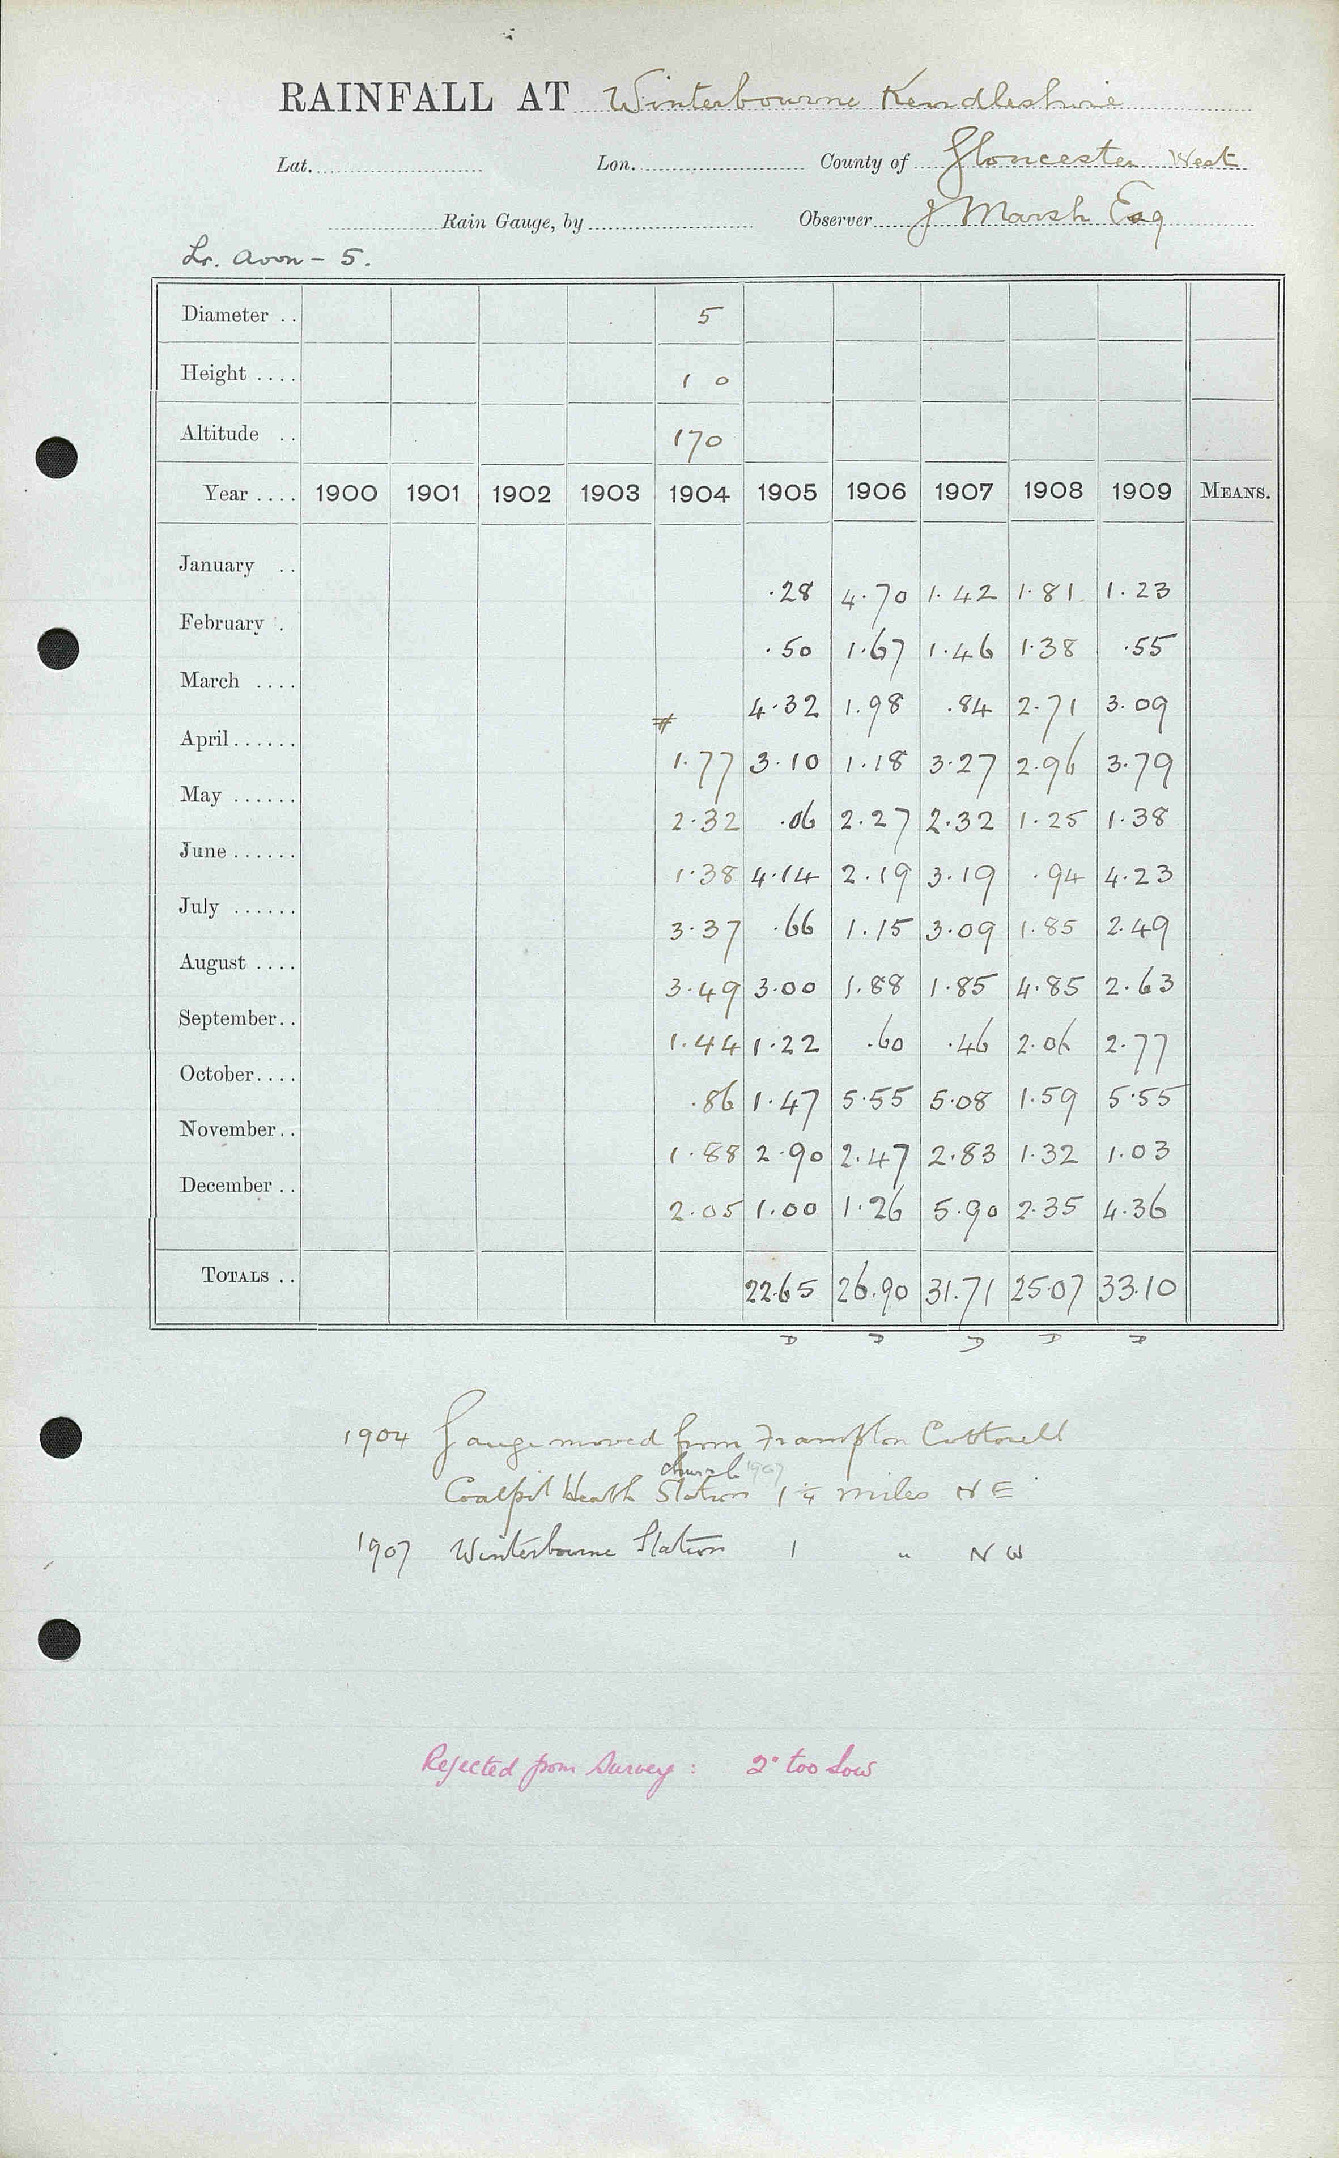 RAINFALL AT Winterbourne Kendleshire
Lat. Lon. County of Gloucester West
Rain Gauge, by Observer J Marsh Esq
Lr. Avon - 5.
Diameter .. 5
Height .... 1 0
Altitude .. 170
Year .... 1900 1901 1902 1903 1904 1905 1906 1907 1908 1909 MEANS.
January .. .28 4.70 1.42 1.81 1.23
February . .50 1.67 1.46 1.38 .55
March .... 4.32 1.98 .84 2.71 3.09
#
April...... 1.77 3.10 1.18 3.27 2.96 3.79
May ...... 2.32 .06 2.27 2.32 1.25 1.38
June...... 1.38 4.14 2.19 3.19 .94 4.23
July ...... 3.37 .66 1.15 3.09 1.85 2.49
August .... 3.49 3.00 1.88 1.85 4.85 2.63
September.. 1.44 1.22 .60 .46 2.06 2.77
October.... .86 1.47 5.55 5.08 1.59 5.55
November.. 1.88 2.90 2.47 2.83 1.32 1.03
December .. 2.05 1.00 1.26 5.90 2.35 4.36
TOTALS .. 22.65 26.90 31.71 25.07 33.10
D D D D D
1904 Gauge moved from Frampton Cotterell
church 1907
Coalpit Heath Station 1 1/4 miles N E
1907 Winterbourne Station 1 " N W
Rejected from Survey : 2" too low